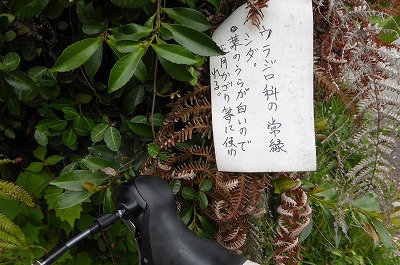 ウラジロ科の常緑
シダ。
・葉のうらが白いので
正月かざり等に使わ
れる。